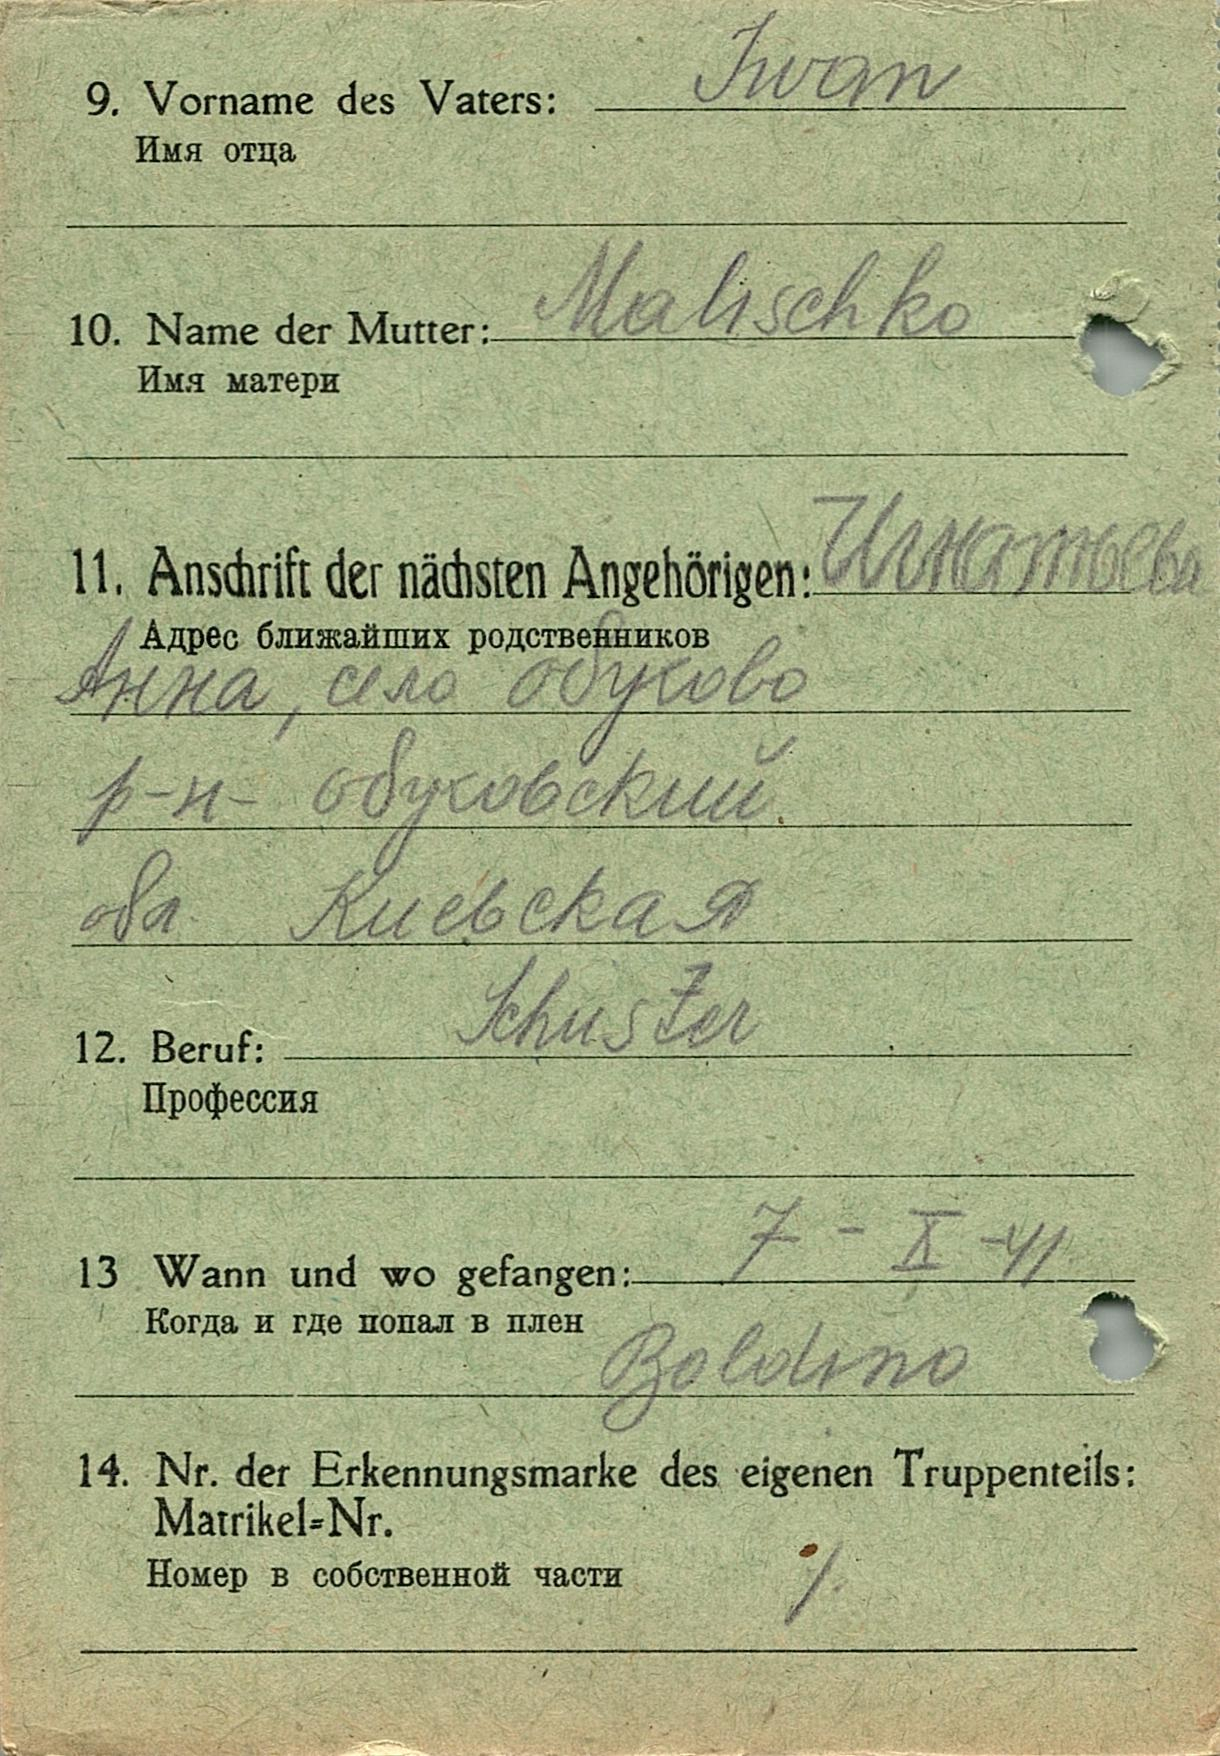 9. Vorname des Vaters: Iwan
Имя отца
10. Name der Mutter: Malischko
Имя матери
11. Anschrift der nächsten Angehörigen: Игнатьева
Адрес ближайших родственников
Анна, село обуково
р-н- обуковский
обл. Киевская
12. Beruf: Schuster
Профессия
13 Wann und wo gefangen: 7 - X - 41
Когда и где попал в плен
Boldino
14. Nr. der Erkennungsmarke des eigenen Truppenteils:
Matrikel=Nr.
Номер в собственной части
/.